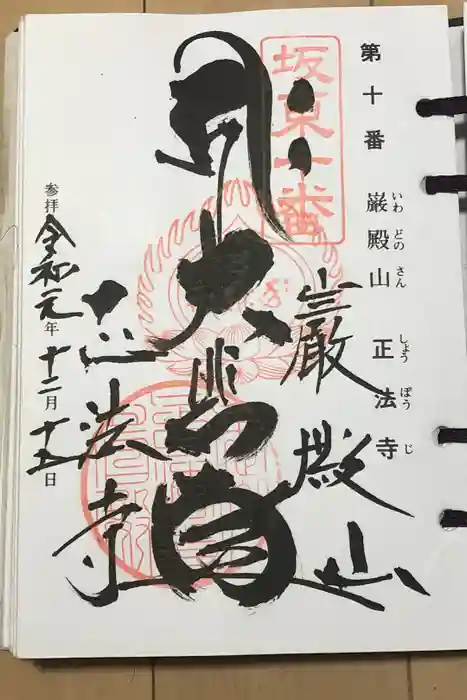 第十番 巌殿山 正法寺
いわ どの さん しょう ぼう じ
坂東十番
巌殿山
大悲堂
正法寺
参拝 令和元年 十二月 十五日